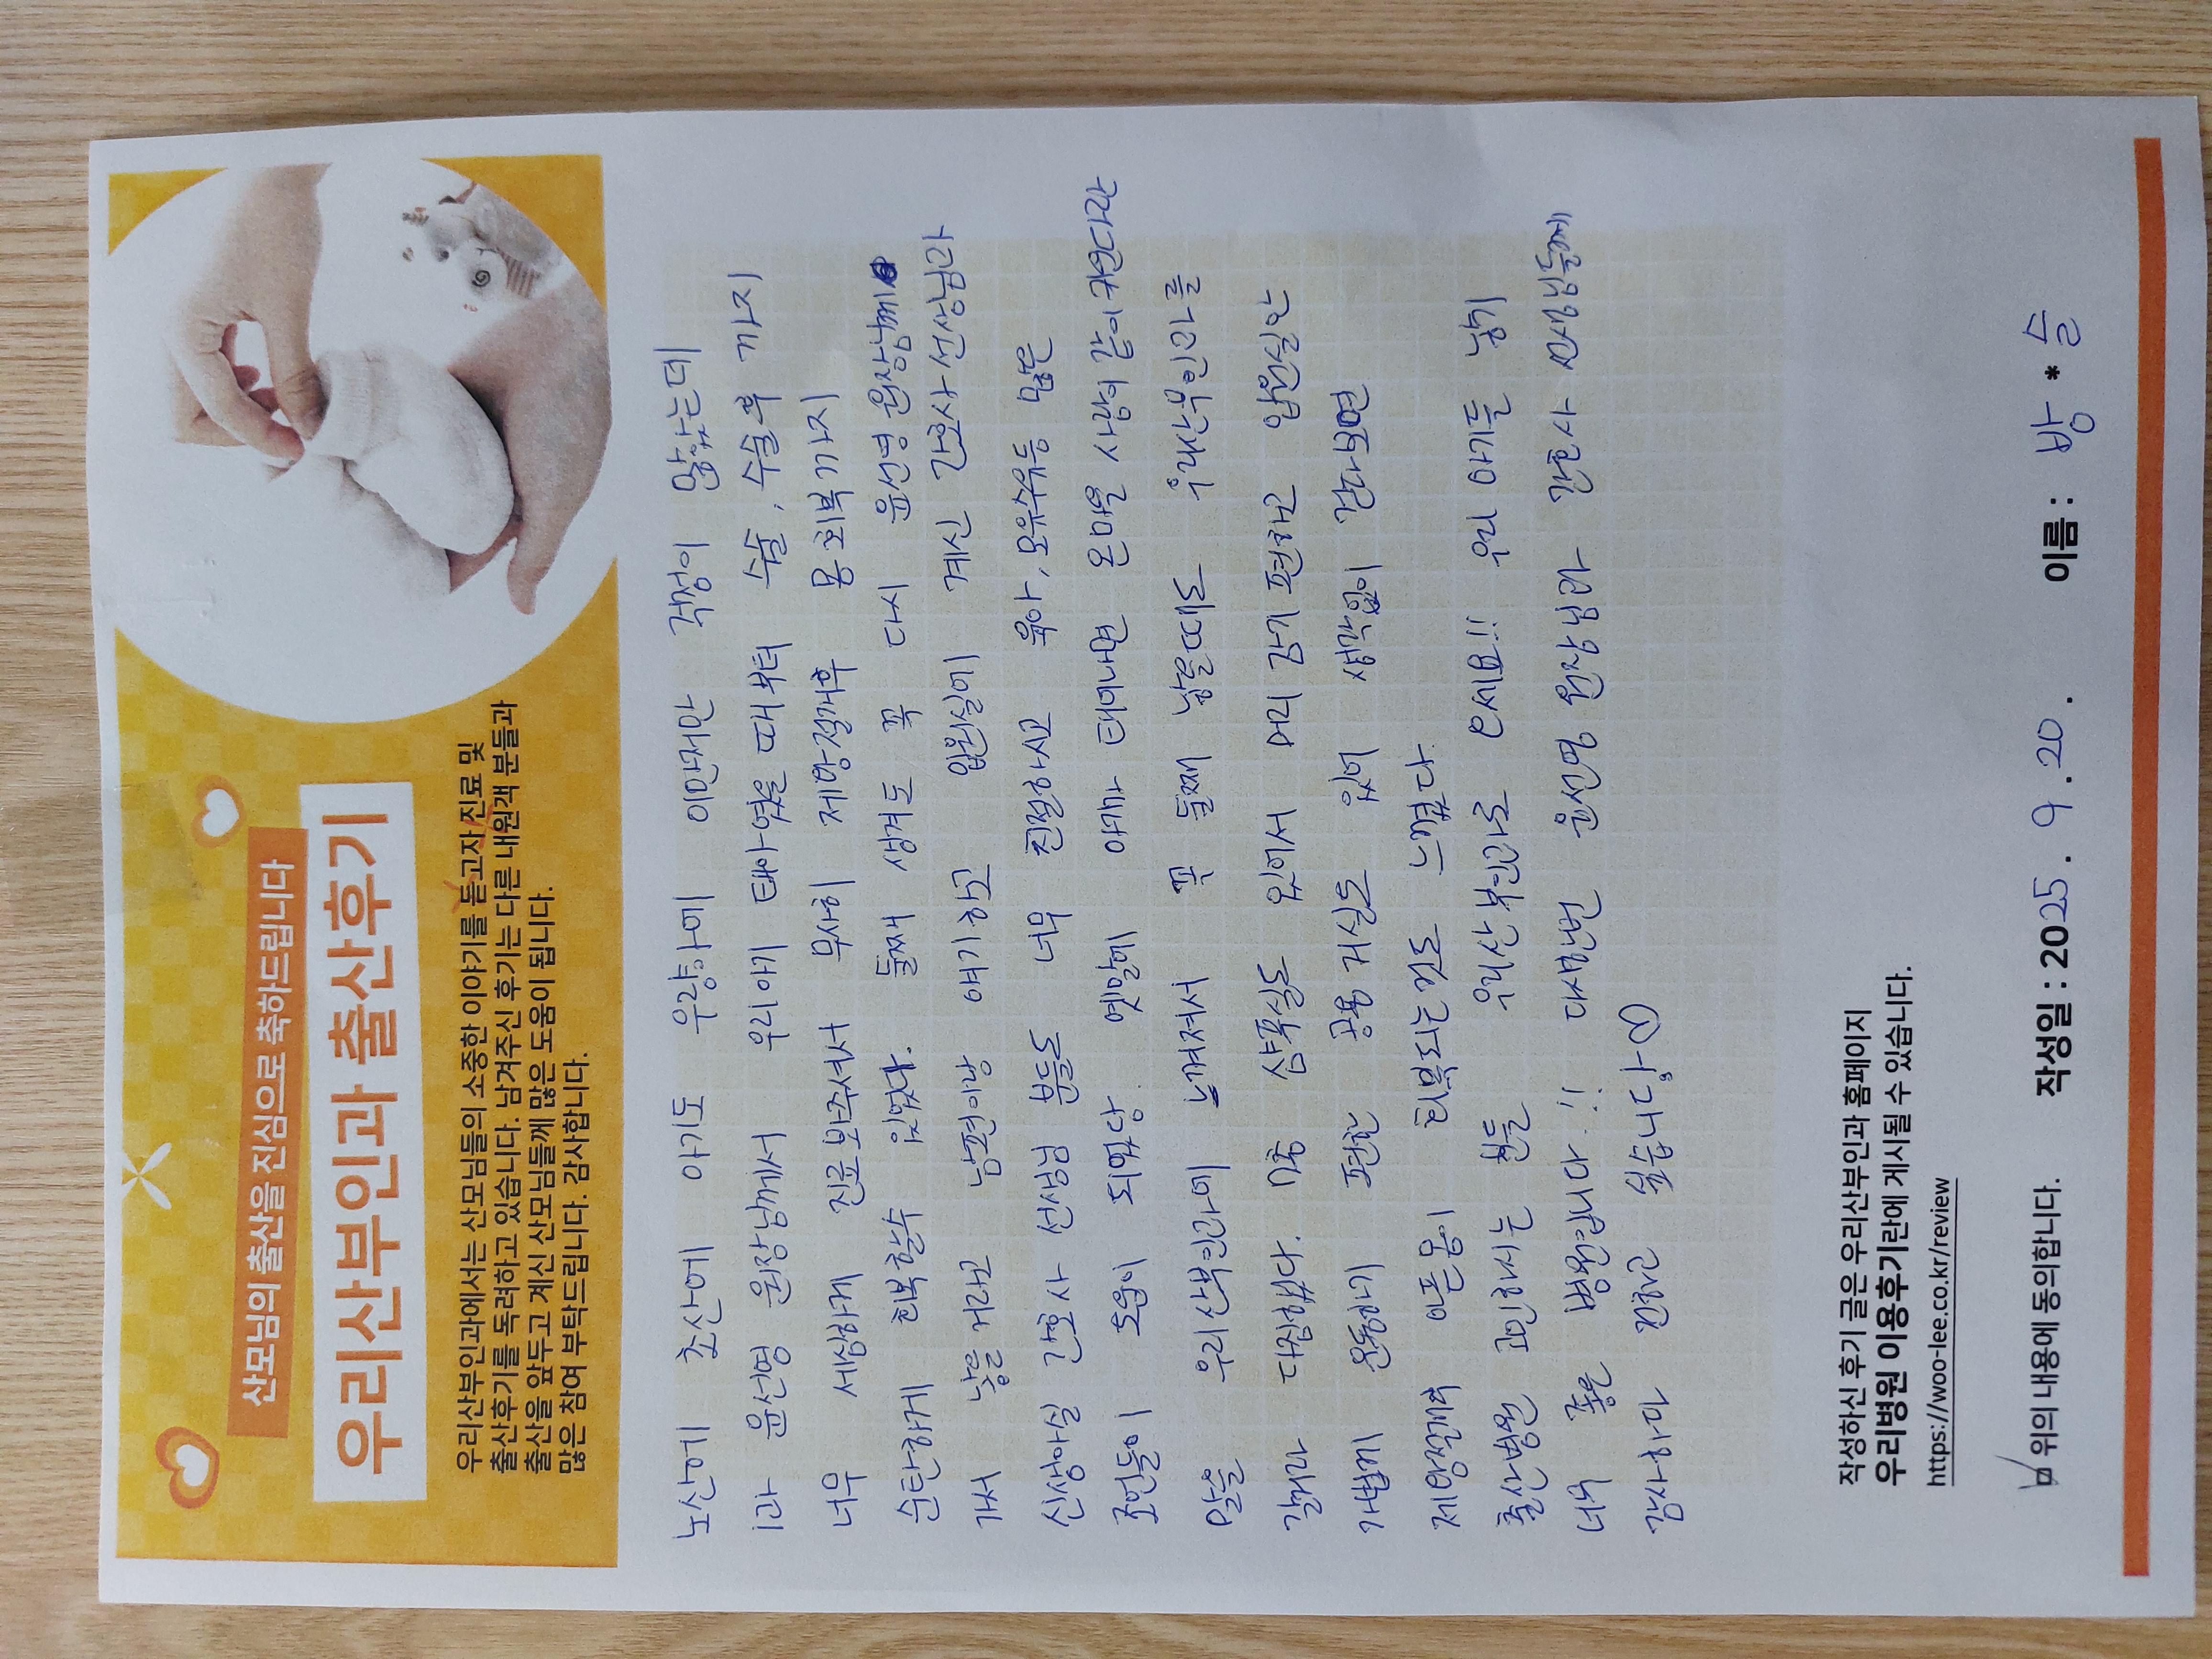 산모님의 출산을 진심으로 축하드립니다
우리산부인과 출산후기
우리산부인과에서는 산모님들의 소중한 이야기를 듣고자 진료 및
출산후기를 독려하고 있습니다. 남겨주신 후기는 다른 내원객 분들과
출산을 앞두고 계신 산모님들께 많은 도움이 됩니다.
많은 참여 부탁드립니다. 감사합니다.
노산에 초산에 아기도 우량아에 이만저만 걱정이 많았는데
1과 윤선영 원장님께서 우리아기 태아였을 때부터 수술, 수술후 까지
너무 세심하게 진료봐주셔서 무사히 제왕절개후 몸 회복까지
순탄하게 회복할수 있었다. 둘째 생겨도 꼭 다시 윤선영 원장님께
가서 낳을거라고 남편이랑 얘기하고 입원실에 계신 간호사 선생님과
신생아실 간호사 선생님 분들도 너무 친절하시고 육아, 모유수유등 많은
조언들이 도움이 되었당. 옛말에 애가 태어나면 온마을 사람이 같이 키운다란
말을 우리산부인과에 느껴져서 꼭 둘째 낳을때도 우리산부인과를
갈거라 다짐했다. 샴푸실도 있어서 머리 감기 편하고 입원실안
가볍게 운동하기 편한 공용 거실도 있어 생각없이 걷다보면
제왕절개의 아픈몸이 회복되는것도 느꼈다.
출산병원 고민하시는 분들 우리산부인과로 오세요!! 우리 아기들 낳기
너무 좋은 병원입니다!! 다시한번 윤선영 원장님과 간호사 선생님들께
감사하다 전하고 싶습니다♡
작성하신 후기 글은 우리산부인과 홈페이지
우리병원 이용후기란에 게시될 수 있습니다.
https://woo-lee.co.kr/review
위의 내용에 동의합니다.
작성일 : 2025. 9. 20.
이름 : 방*슬